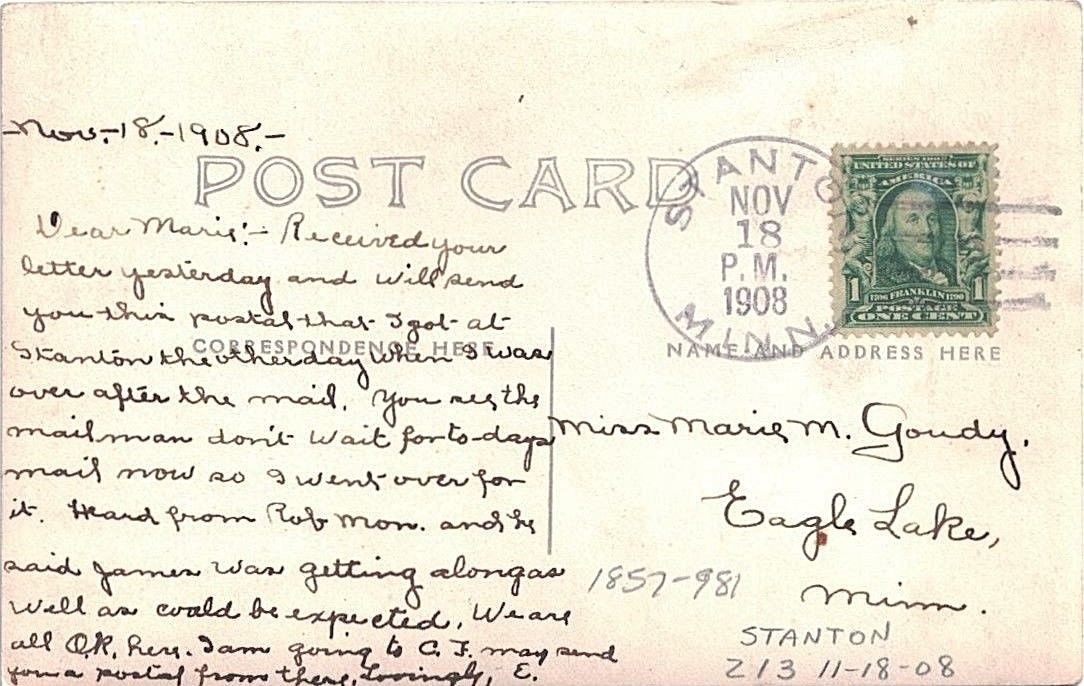 Nov.-18.-1908.-
POST CARD
Dear Marie:- Received your
letter yesterday and will send
you this postal that I got at
Stanton the other day when I was
over after the mail. You see the
mail man don't wait for to-days
mail now so I went over for
it. Heard from Rob Mon. and he
said James was getting along as
well as could be expected. We are
all O.K. here. I am going to C. F. may send
you a postal from there. Lovingly, E.
CORRESPONDENCE HERE
STANTON
NOV
18
P.M.
1908
MINN.
SERIES 1902
UNITED STATES OF
AMERICA
1 1
1706 FRANKLIN 1790
POSTAGE
ONE CENT
NAME AND ADDRESS HERE
Miss Marie M. Goudy,
Eagle Lake,
Minn.
1857-981
STANTON
213 11-18-08